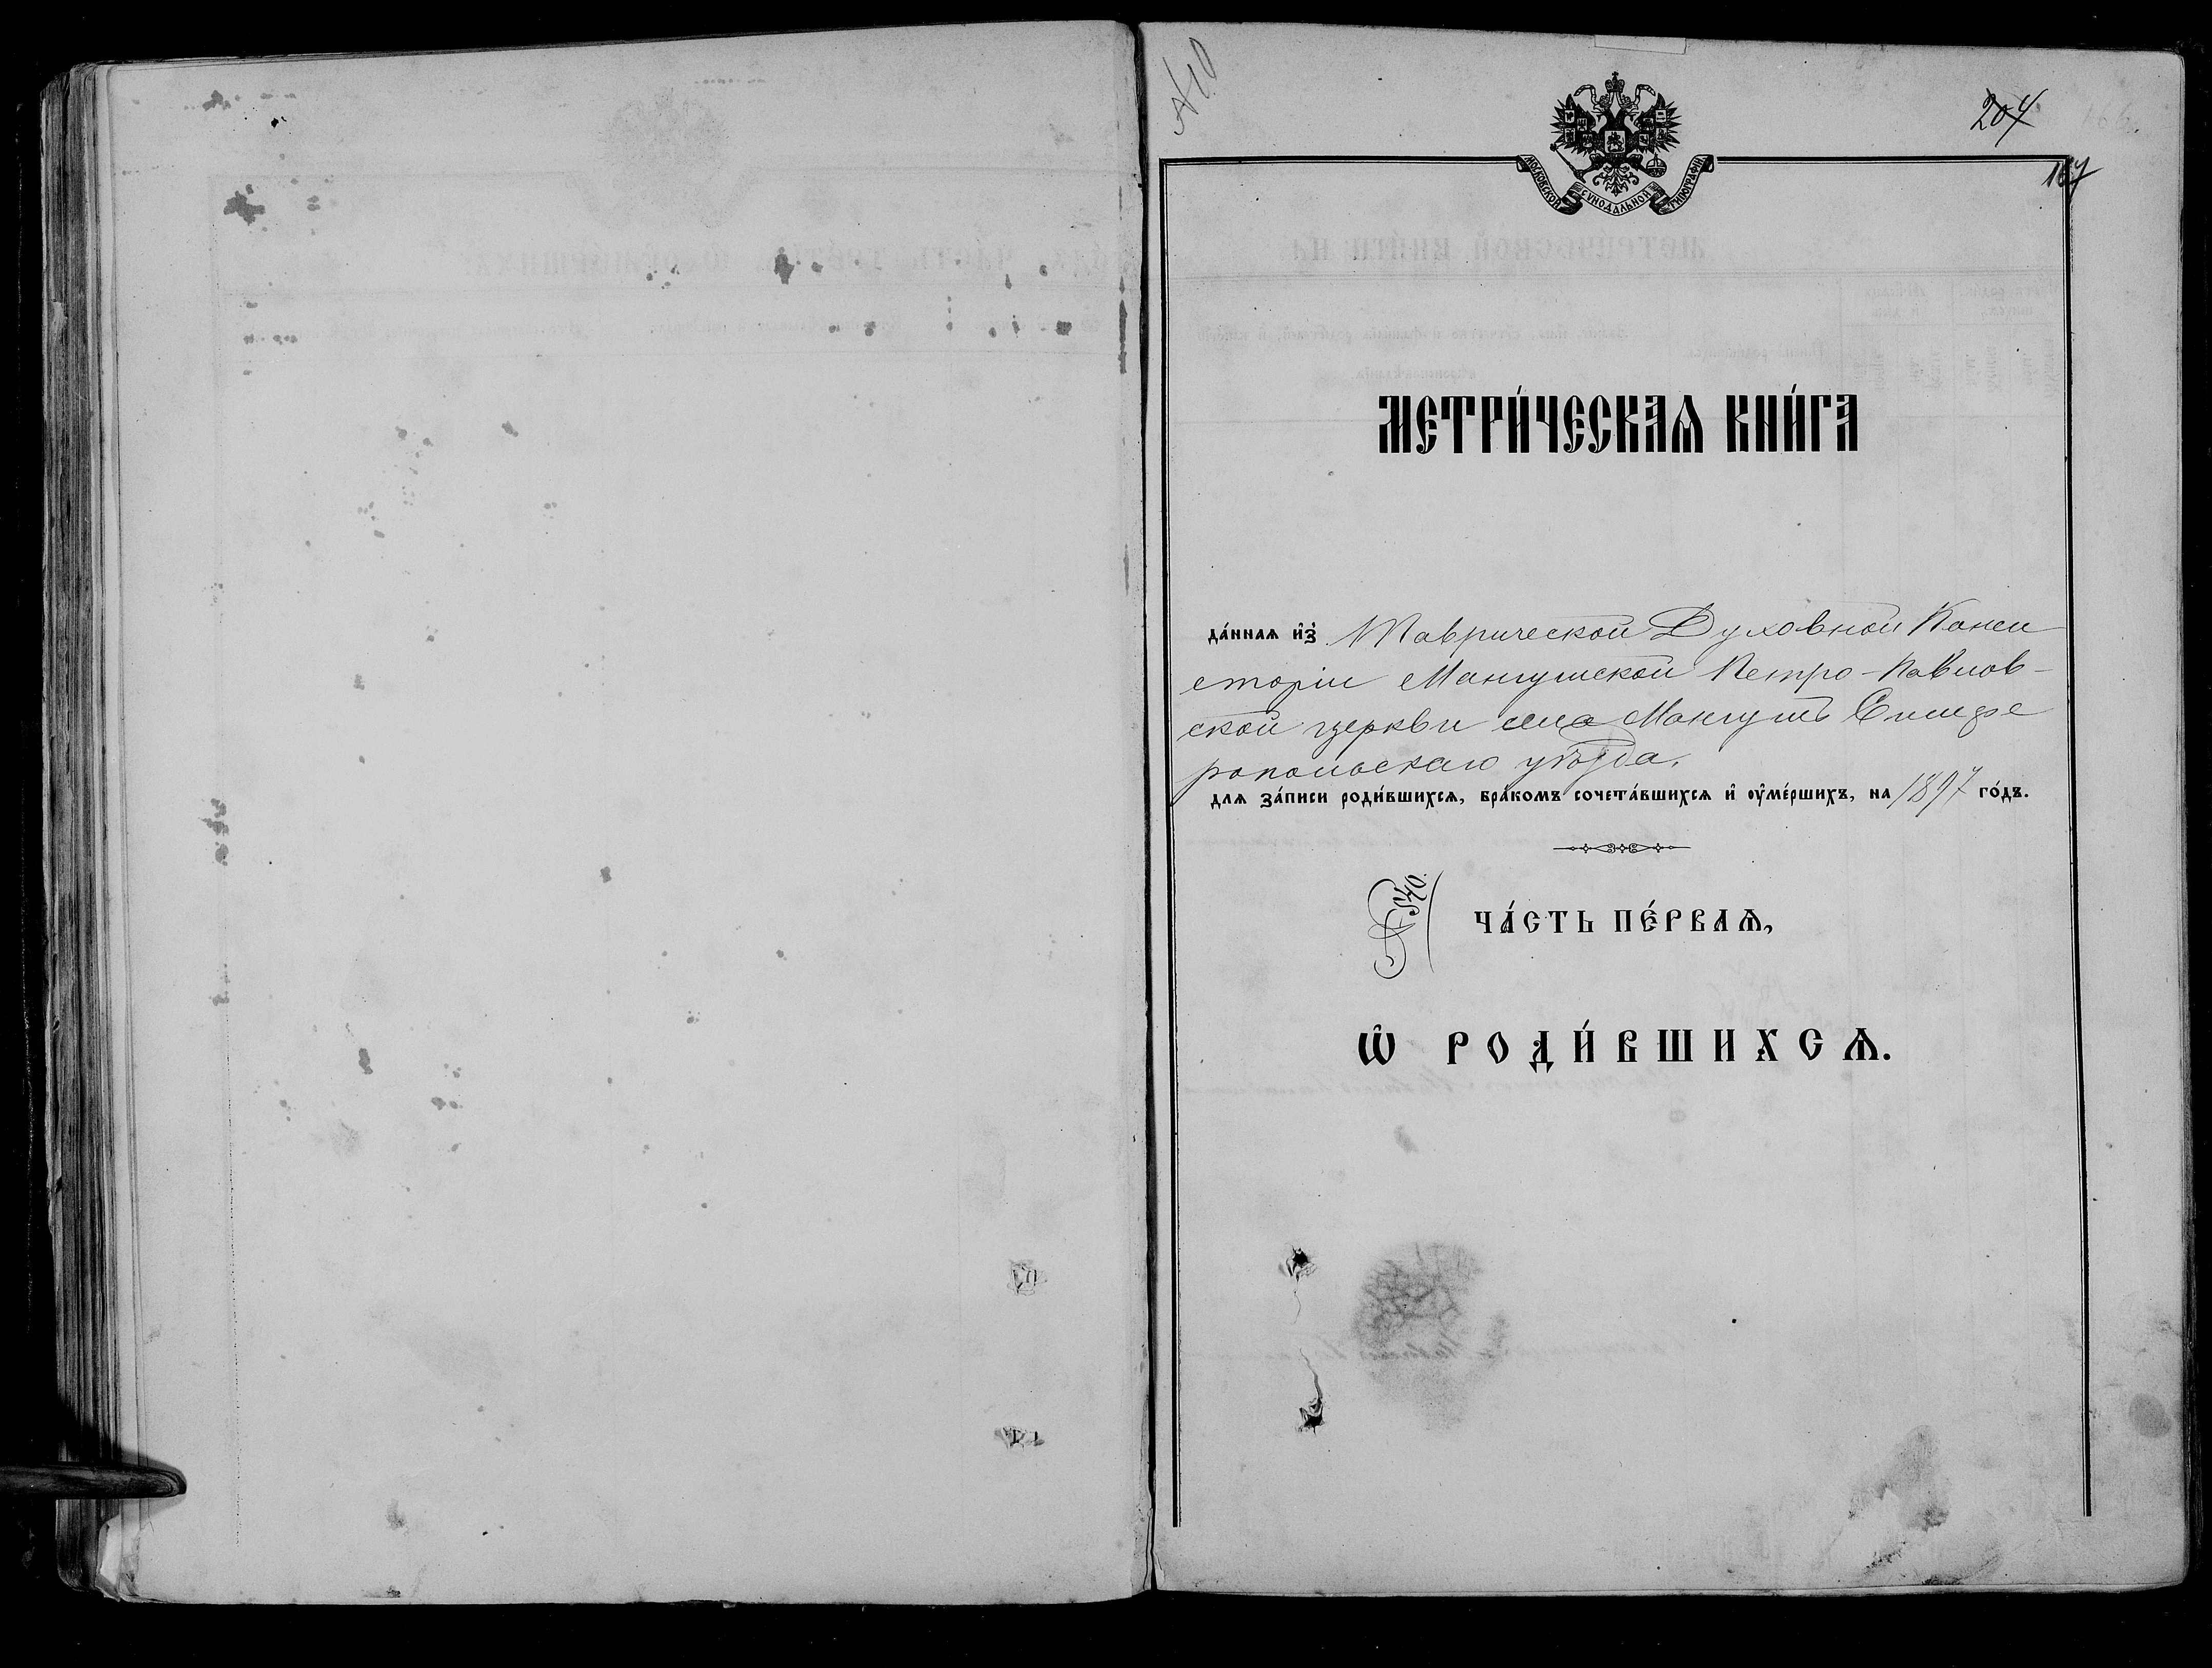 204
167
МОСКОВСКОЙ СѴНОДАЛЬНОЙ ТИПОГРАФІИ
МЕТРИ́ЧЕСКАѦ КНИ́ГА
да́ннаѧ и҆з̾ Таврической Духовной Конси
сторіи Мангушской Петро-Павлов-
ской церкви села Мангушъ Симфе
ропольскаго уѣзда.
для за́писи роди́вшихсѧ, бра́комъ сочета́вшихсѧ и҆ ᲂу҆ме́ршихъ, на 1897 го́дъ.
№ 540.
ЧА́СТЬ ПЕ́РВАѦ,
Ѡ҆ РОДИ́ВШИХСѦ.